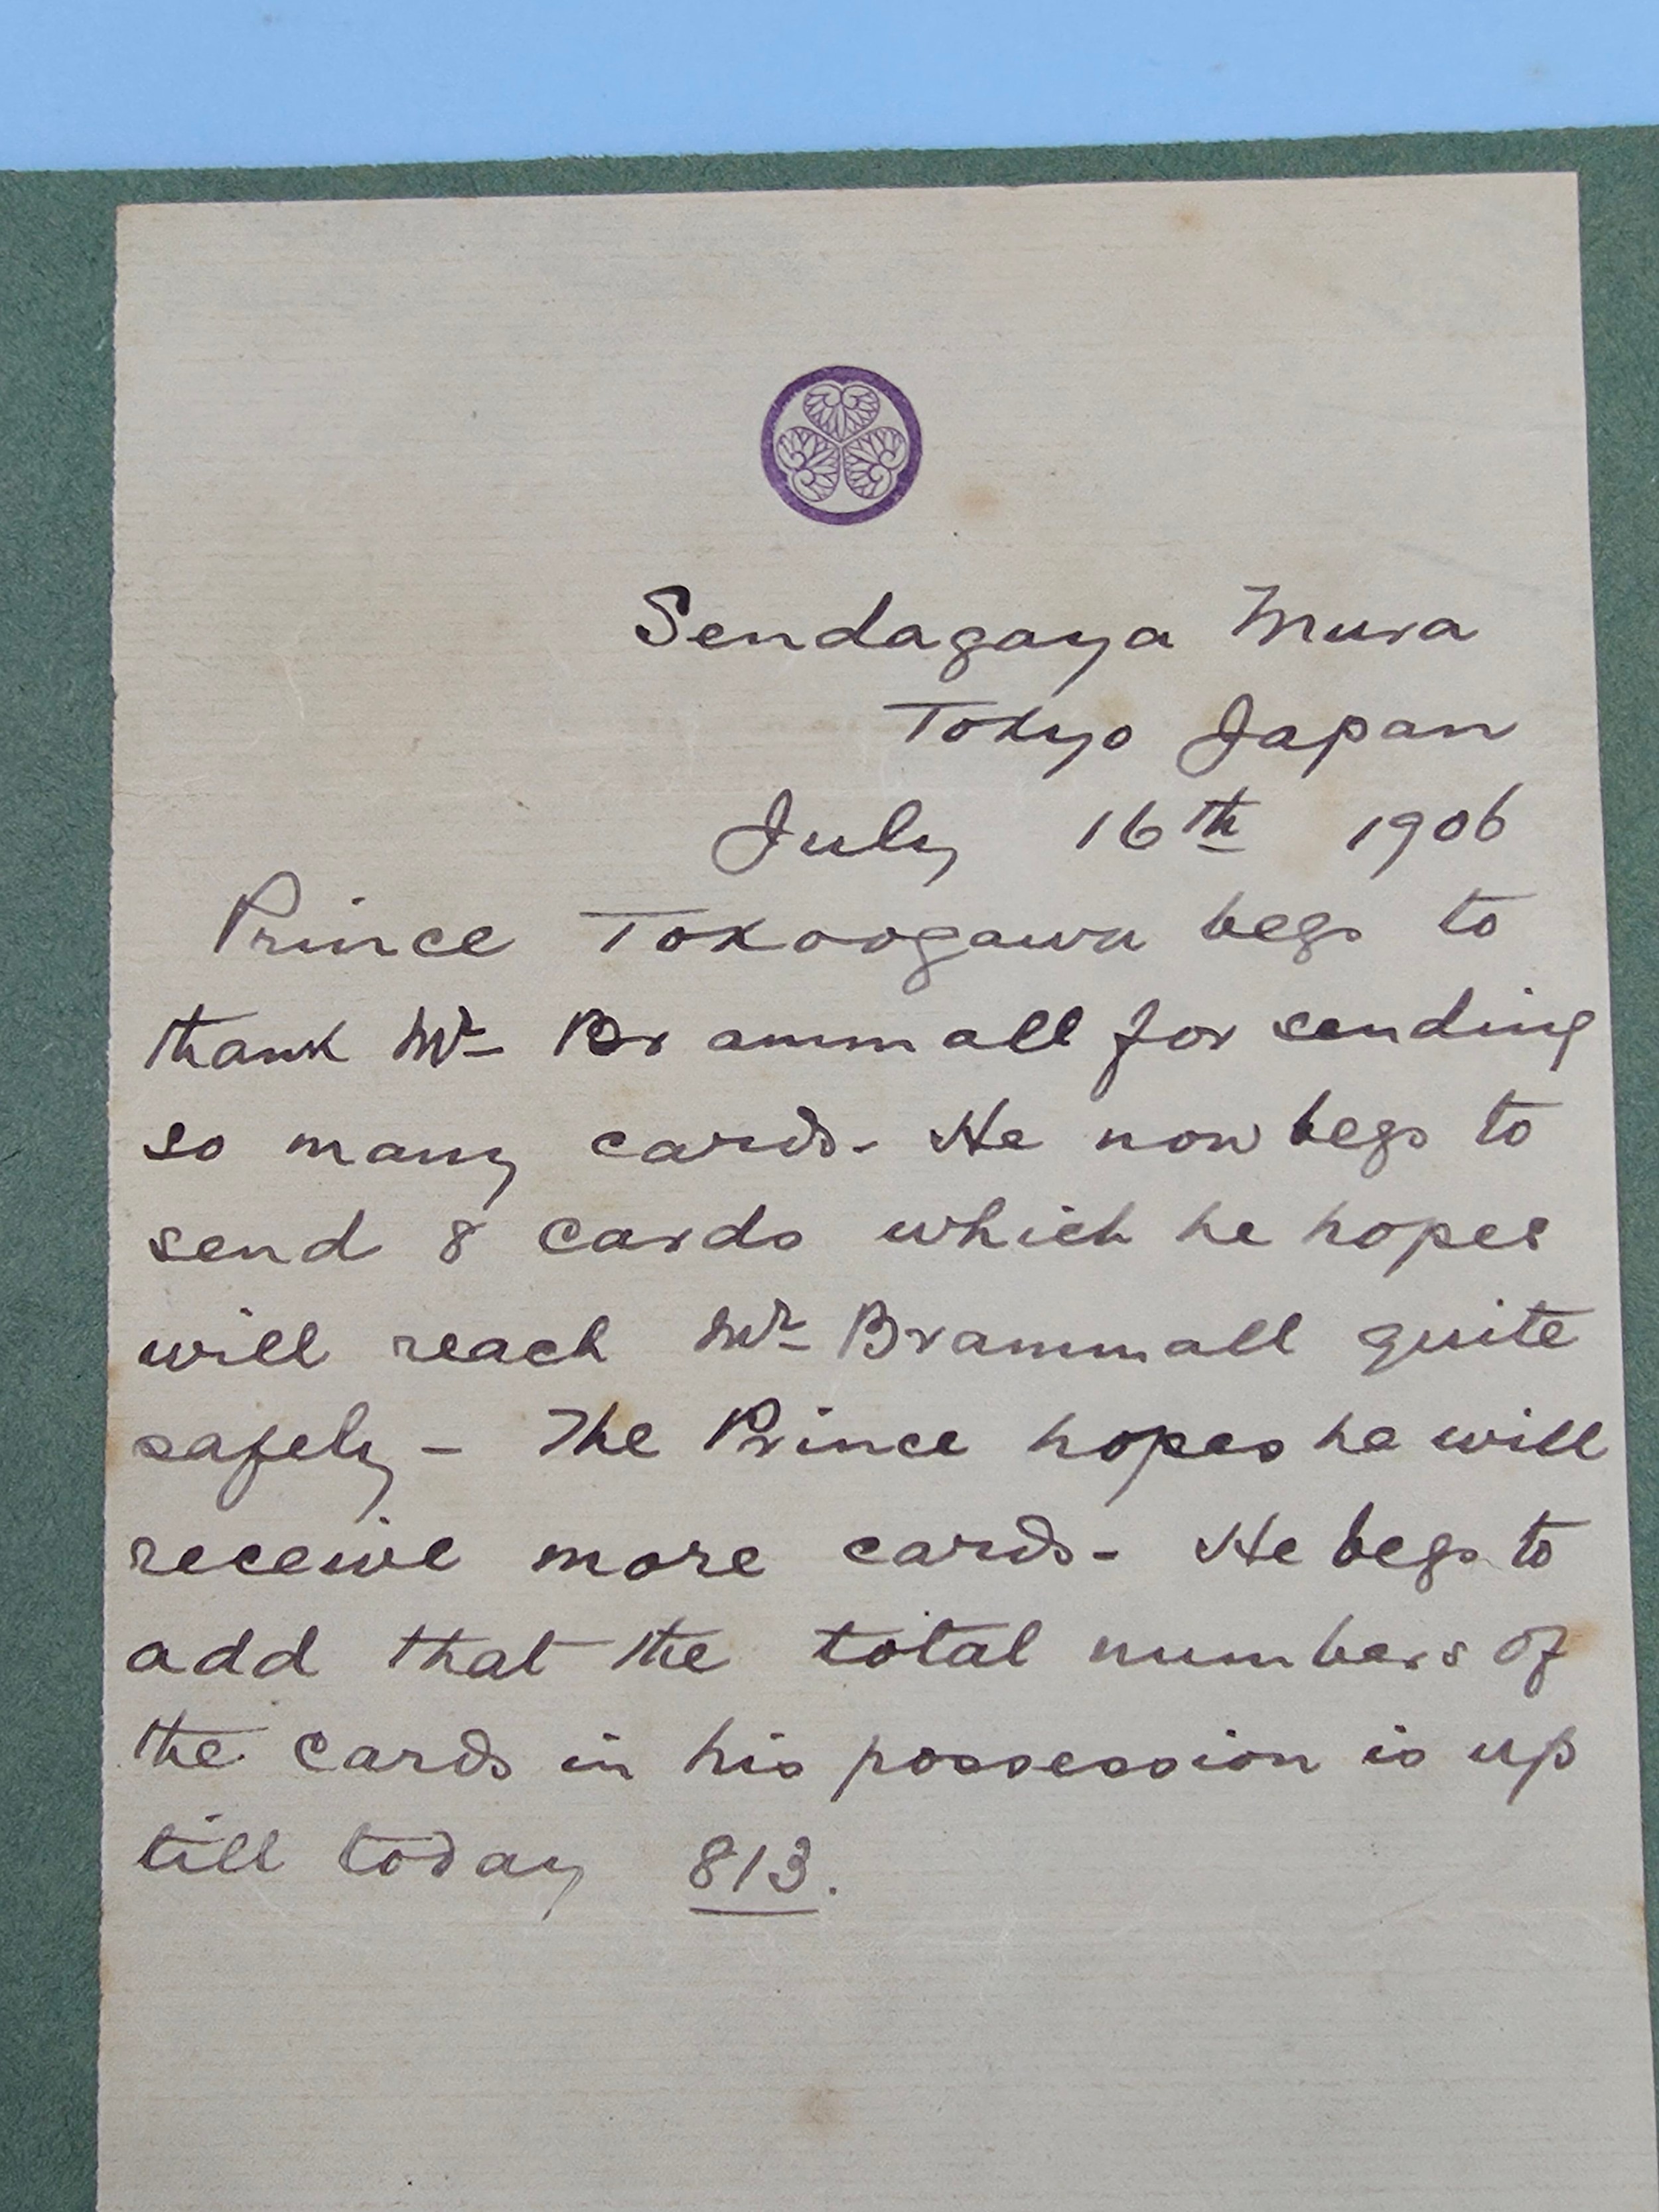 Sendagaya Mura
Tokyo Japan
July 16th 1906
Prince Tokoogawa begs to
thank Mr Brammall for sending
so many cards. He now begs to
send 8 cards which he hopes
will reach Mr Brammall quite
safely - The Prince hopes he will
receive more cards - He begs to
add that the total numbers of
the cards in his possession is up
till today 813.